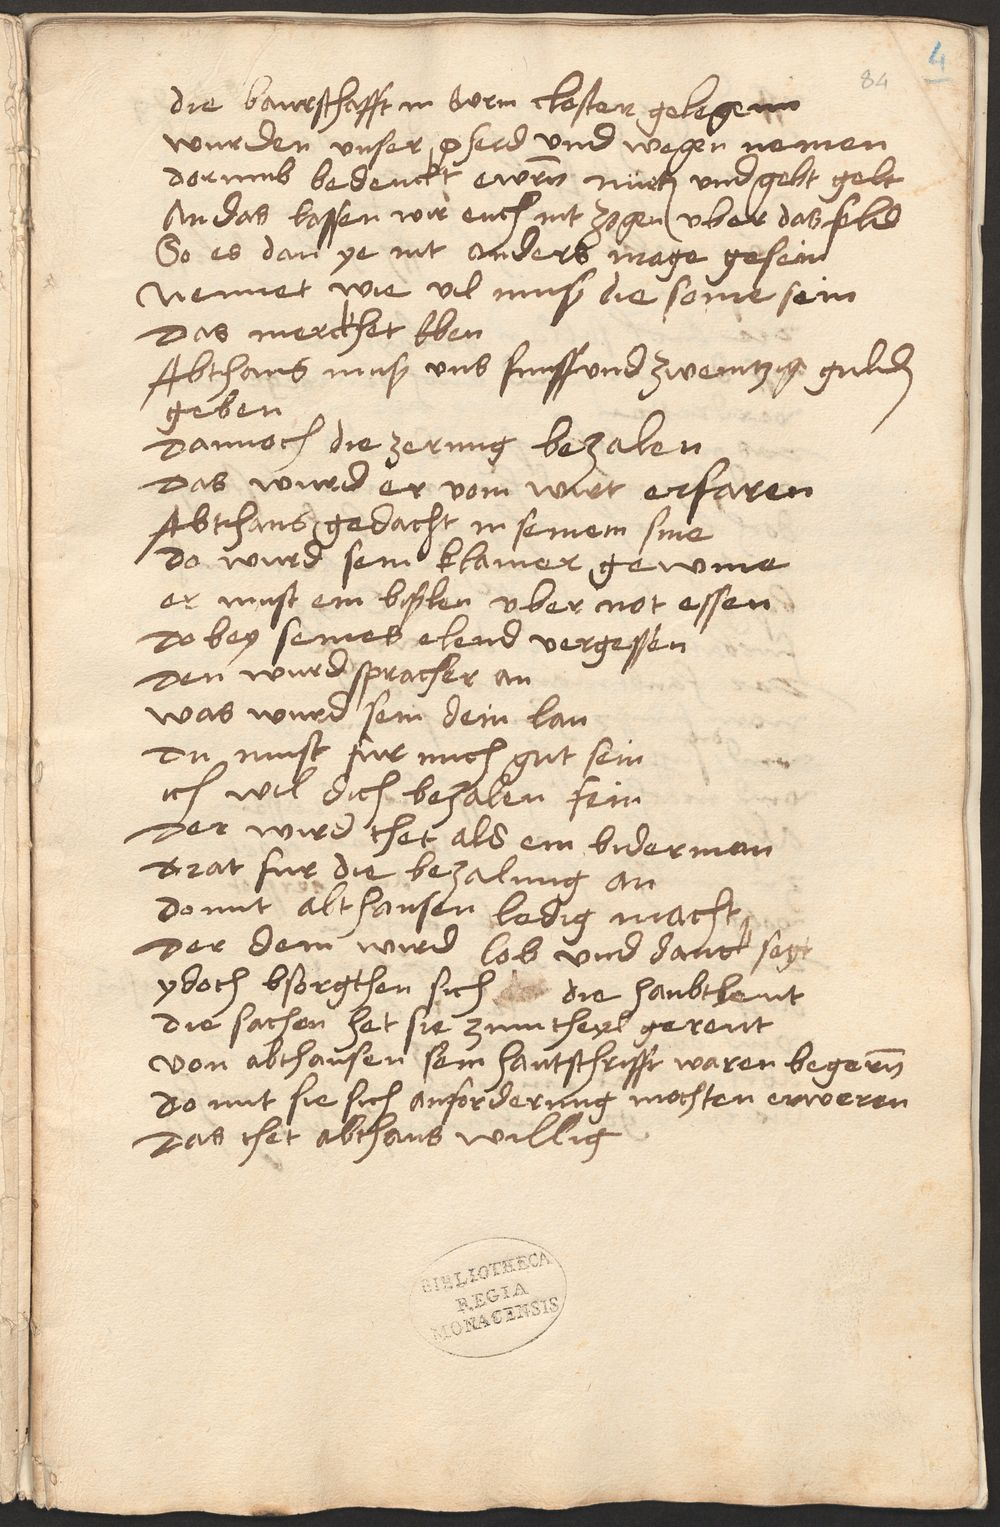 4
84
die baurschafft in Eurm closter gelegenn
wurden unser pferd und wegen nemen
dorumb bedenckt ewrn nutz und gebt gelt
An das lassen wir euch nit zogen uber das feld
So es dan ye nit anders mage gesein
Nennet wie vil muß die some sein
Das merckhet eben
Abthans muß uns funff und zwentzig guld
geben
Dannoch die zerung bezalen
Das wurd er vom wirt erfaren
Abthans gedacht in seinem sine
do wurd sein klainer gewine
er must ein bißlen uber not essen
Do bey seines elend vergessen
Den wurd sprach er an
was wurd sein dein lan
Du must fur mich gut sein
ich wil dich bezalen fein
Der wird thet als ein biderman
trat fur die bezalung an
do mit abthansen ledig macht
Der dem wird lob und danck sagt
ydoch bsorgthen sich die haubtleut
die sachen het sie zum theyl gereut
von abthansen sein hantschrifft waren begern
do mit sie sich anforderung mochten erweren
Das thet abthans willig
BIBLIOTHECA
REGIA
MONACENSIS